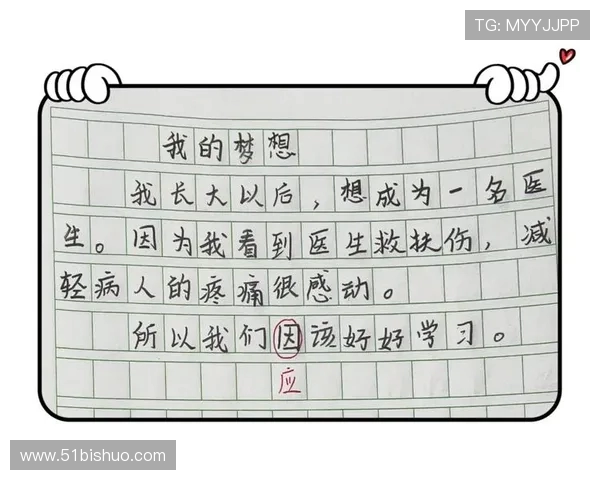 TG: MYYJJPP
我的梦想
我长大以后，想成为一名医
生。因为我看到医生救扶伤，减
轻病人的疼痛很感动。
所以我们因该好好学习。
应
www.51bishuo.com